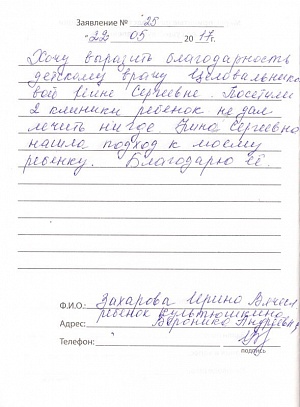 Заявление № 25
"22" 05 2017г.
Хочу выразить благодарность
детскому врачу Целовальнико
вой Нине Сергеевне. Посетили
2 клиники ребенок не дал
лечить нигде. Нина Сергеевна
нашла подход к моему
ребенку. Благодарю её.
Ф.И.О.: Захарова Ирина Вячесл
ребенок Культюшкина
Адрес: Вероника Андреевна
Телефон:
подпись